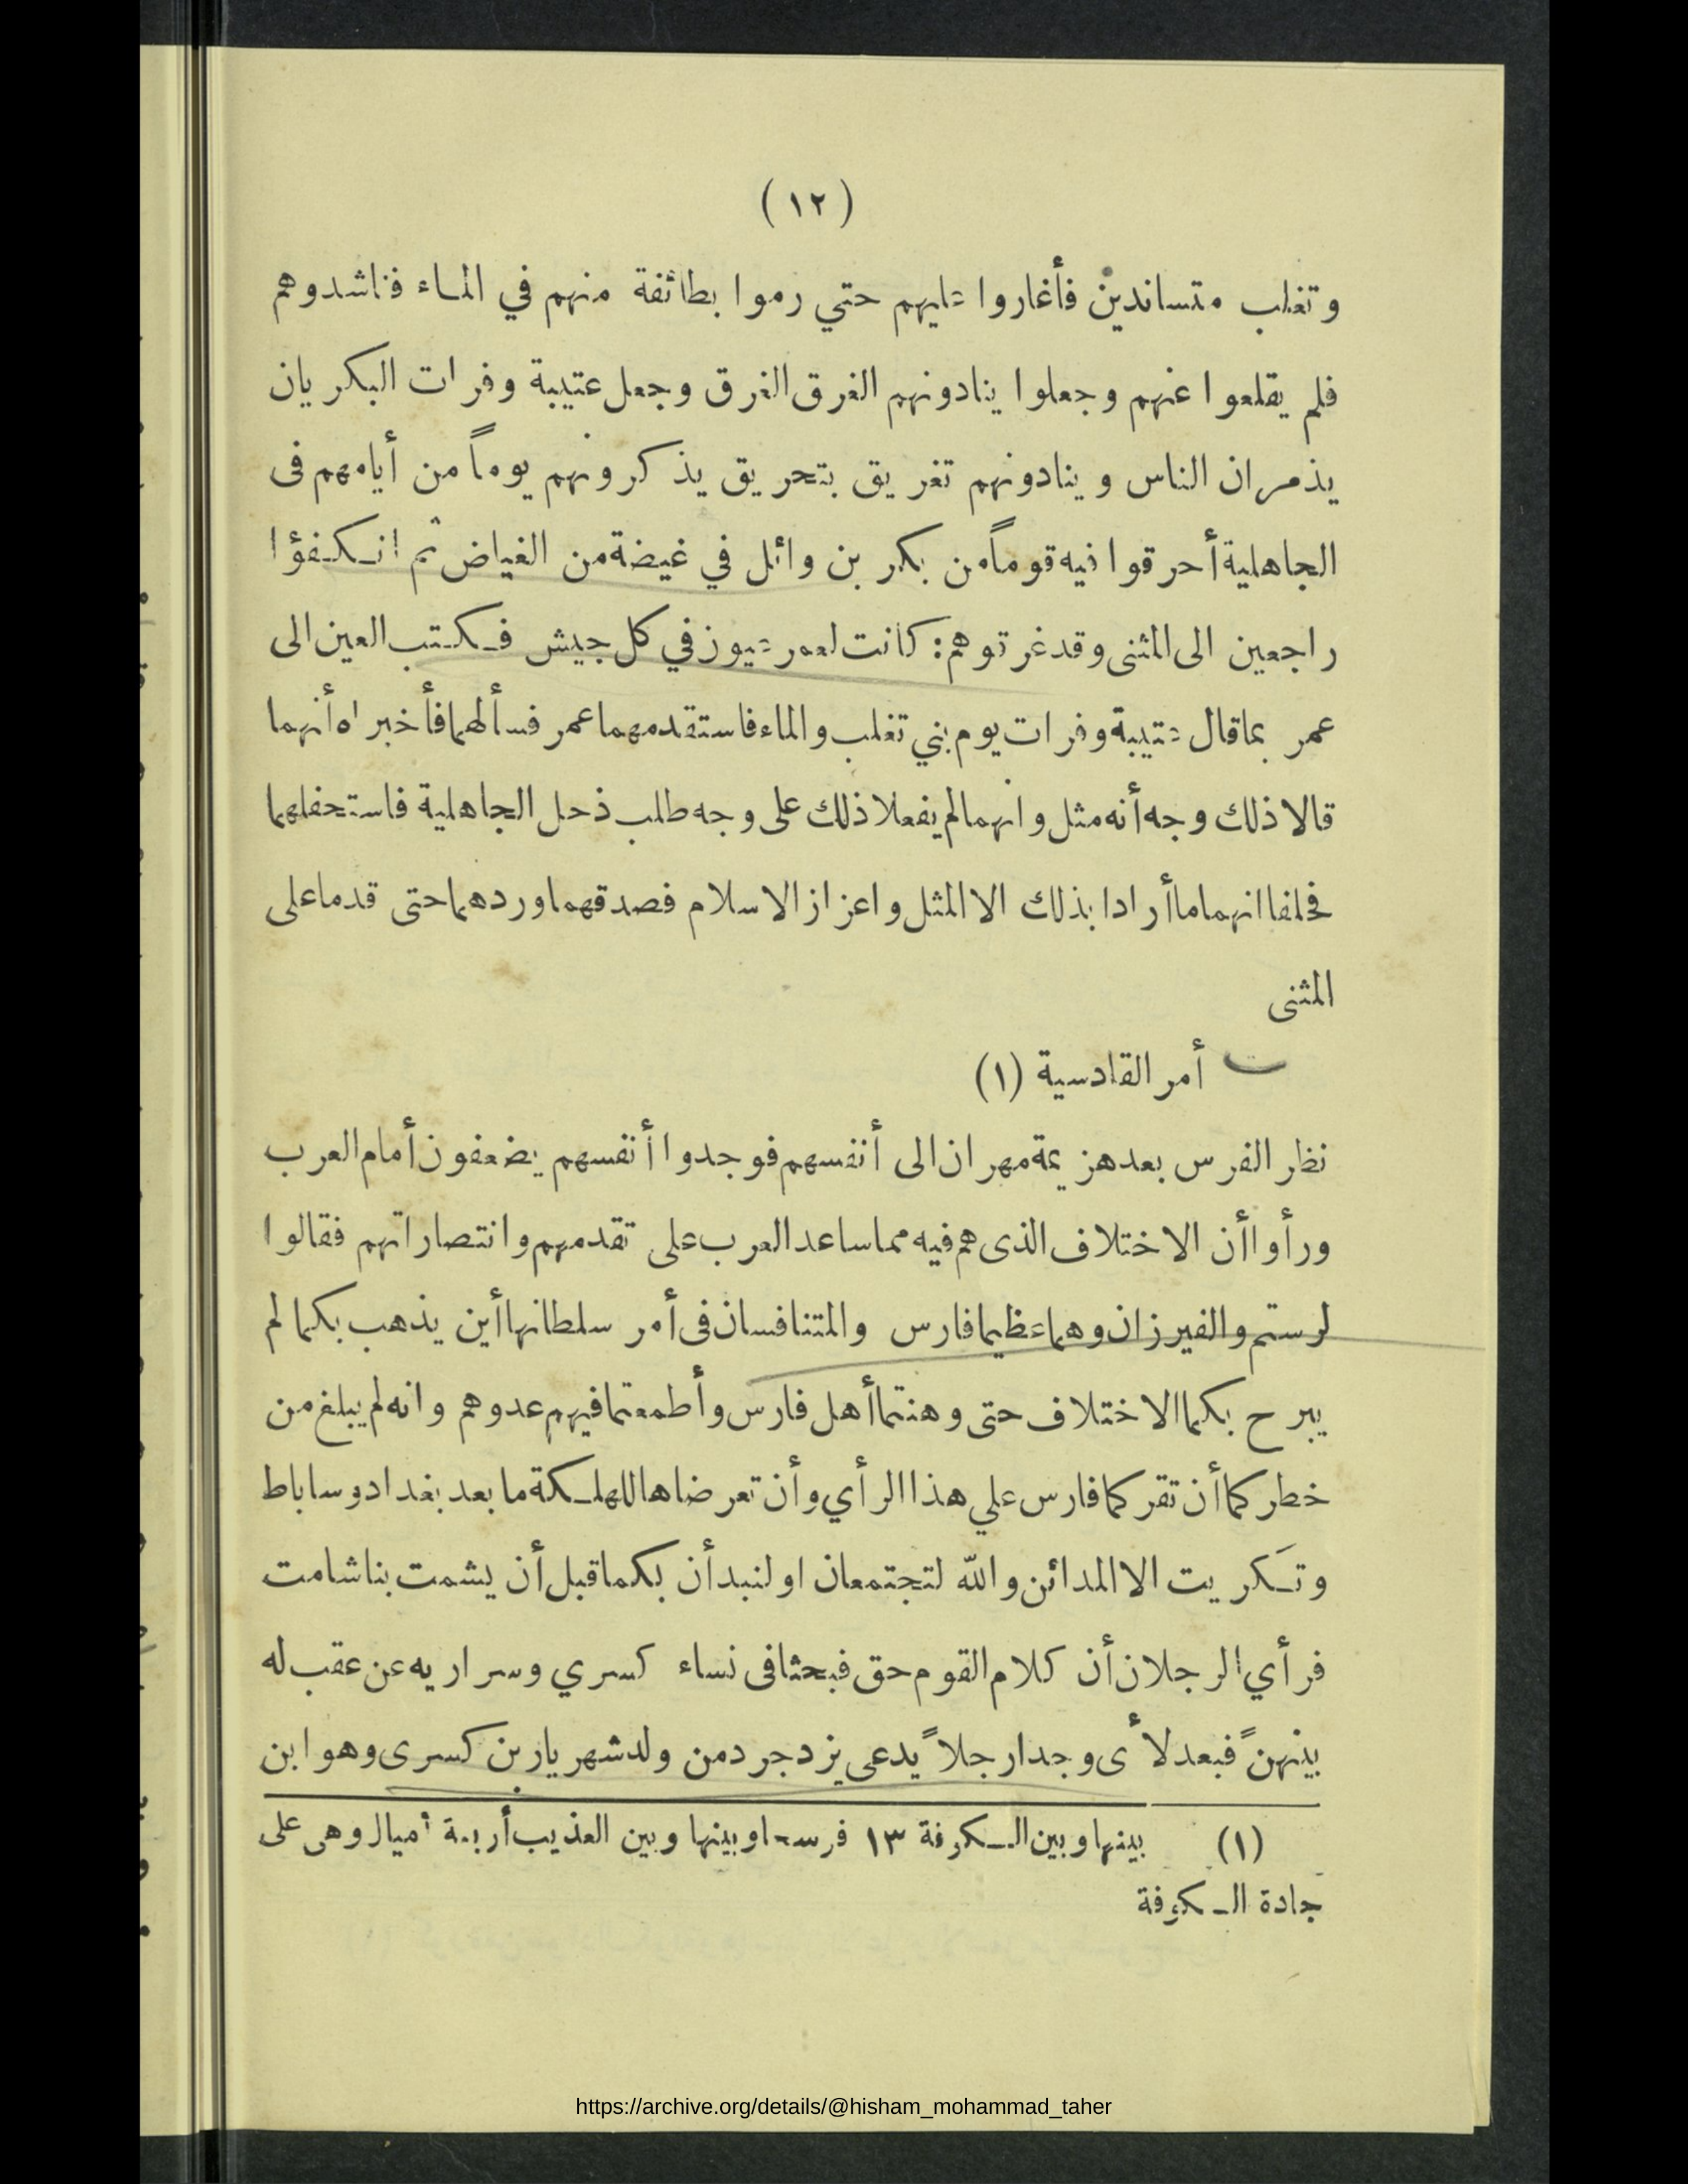 (١٢)
وتغلب متساندين فأغاروا عليهم حتي رموا بطائفة منهم في المـاء فناشدوهم
فلم يقلعوا عنهم وجعلوا ينادونهم الغرق الغرق وجعل عتيبة وفرات البكريان
يذمران الناس وينادونهم تغريق بتحريق يذكرونهم يوماً من أيامهم فى
الجاهلية أحرقوا فيه قوماً من بكر بن وائل في غيضة من الغياض ثم انكفؤا
راجعين الى المثنى وقد غرقوهم: كانت لعمر عيون في كل جيش فكتب العين الى
عمر بما قال عتيبة وفرات يوم بني تغلب والماء فاستقدمهما عمر فسألهما فأخبراه أنهما
قالا ذلك وجه أنه مثل وانهما لم يفعلا ذلك على وجه طلب ذحل الجاهلية فاستحفلهما
فحلفا انهما ما أرادا بذلك الا المثل واعزاز الاسلام فصدقهما وردهما حتى قدما على
المثنى
أمر القادسية (١)
نظر الفرس بعد هزيمة مهران الى أنفسهم فوجدوا أنفسهم يضعفون أمام العرب
ورأوا أن الاختلاف الذى هم فيه مما ساعد العرب على تقدمهم وانتصاراتهم فقالوا
لرستم والفيرزان وهما عظيما فارس والمتنافسان فى أمر سلطانها أين يذهب بكما لم
يبرح بكما الاختلاف حتى وهنتما أهل فارس وأطمعتما فيهم عدوهم وانه لم يبلغ من
خطركما أن تقركما فارس علي هذا الرأي وأن تعرضاها للهلكة ما بعد بغداد وساباط
وتكريت الا المدائن والله لتجتمعان او لنبدأن بكما قبل أن يشمت بنا شامت
فرأي الرجلان أن كلام القوم حق فبحثا فى نساء كسري وسراريه عن عقب له
بينهنّ فبعد لأى وجدا رجلاً يدعى يزدجرد من ولد شهريار بن كسرى وهو ابن
(١) بينها وبين الكوفة ١٣ فرسخا وبينها وبين العذيب أربعة أميال وهى على
جادة الكوفة
https://archive.org/details/@hisham_mohammad_taher